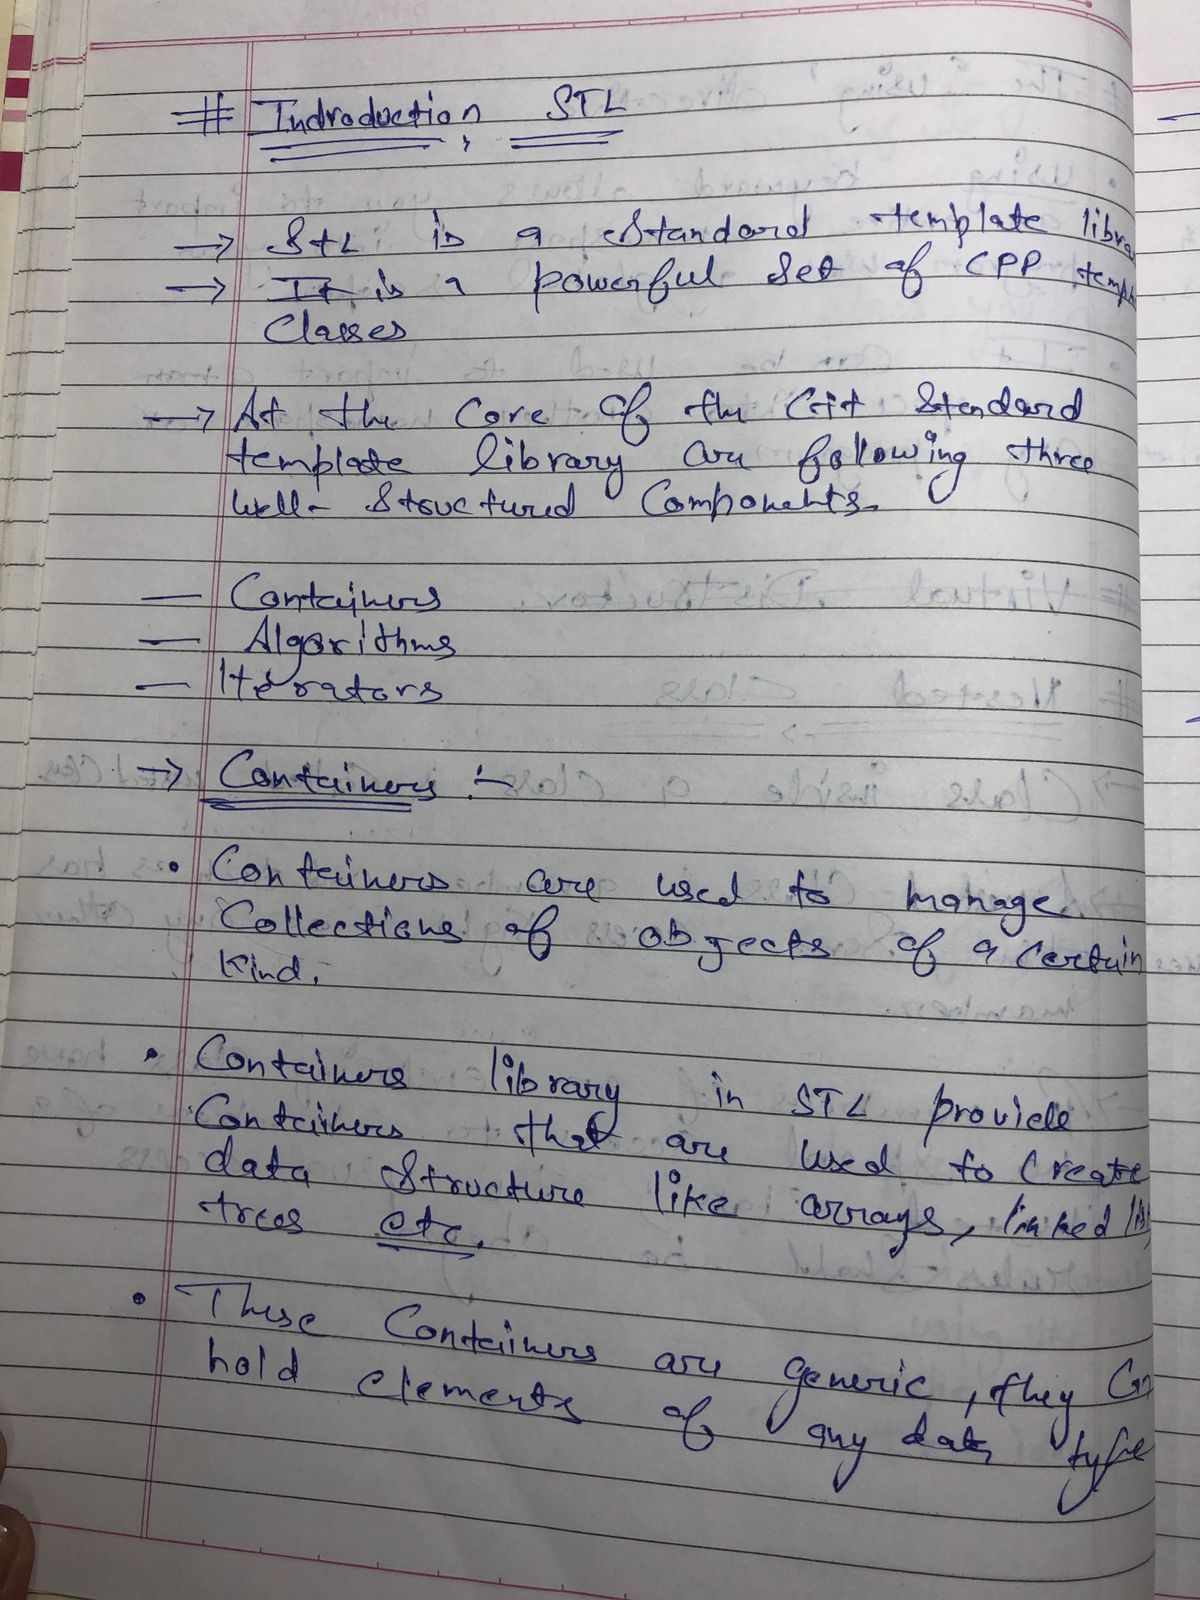 # Indroduction, STL
→ STL is a Standard template libra
→ It is a powerful Set of CPP temp
Classes
→ At the Core of the C++ Standard
template library are following three
Well- Structured Components.
— Containers
— Algorithms
— Iterators
→ Containers :-
• Containers are used to manage
Collections of objects of a Certain
Kind.
• Containers library in STL provide
Containers that are used to Create
data Structure like arrays, linked lis
trees etc.
• These Containers are generic, they Can
hold elements of any data type